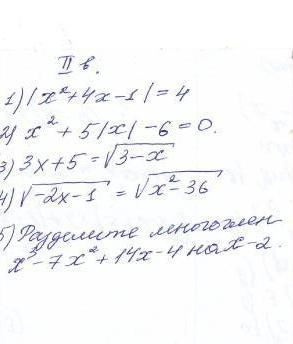 II в.
1) |x²+4x-1|=4
2) x² + 5|x| - 6 = 0.
3) 3x+5 = √3-x
4) √-2x-1 = √x²-36
5) Разделите многочлен
x³-7x²+14x-4 на x-2.